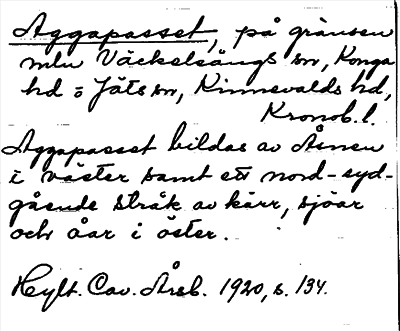 Aggapasset, på gränsen
mln Väckelsångs sn, Konga
hd o Jäts sn, Kinnevalds hd,
Kronob. l.
Aggapasset bildas av Åsnen
i väster samt ett nord-syd-
gående stråk av kärr, sjöar
och åar i öster.
Hylt. Cav. Årsb. 1920, s. 134.